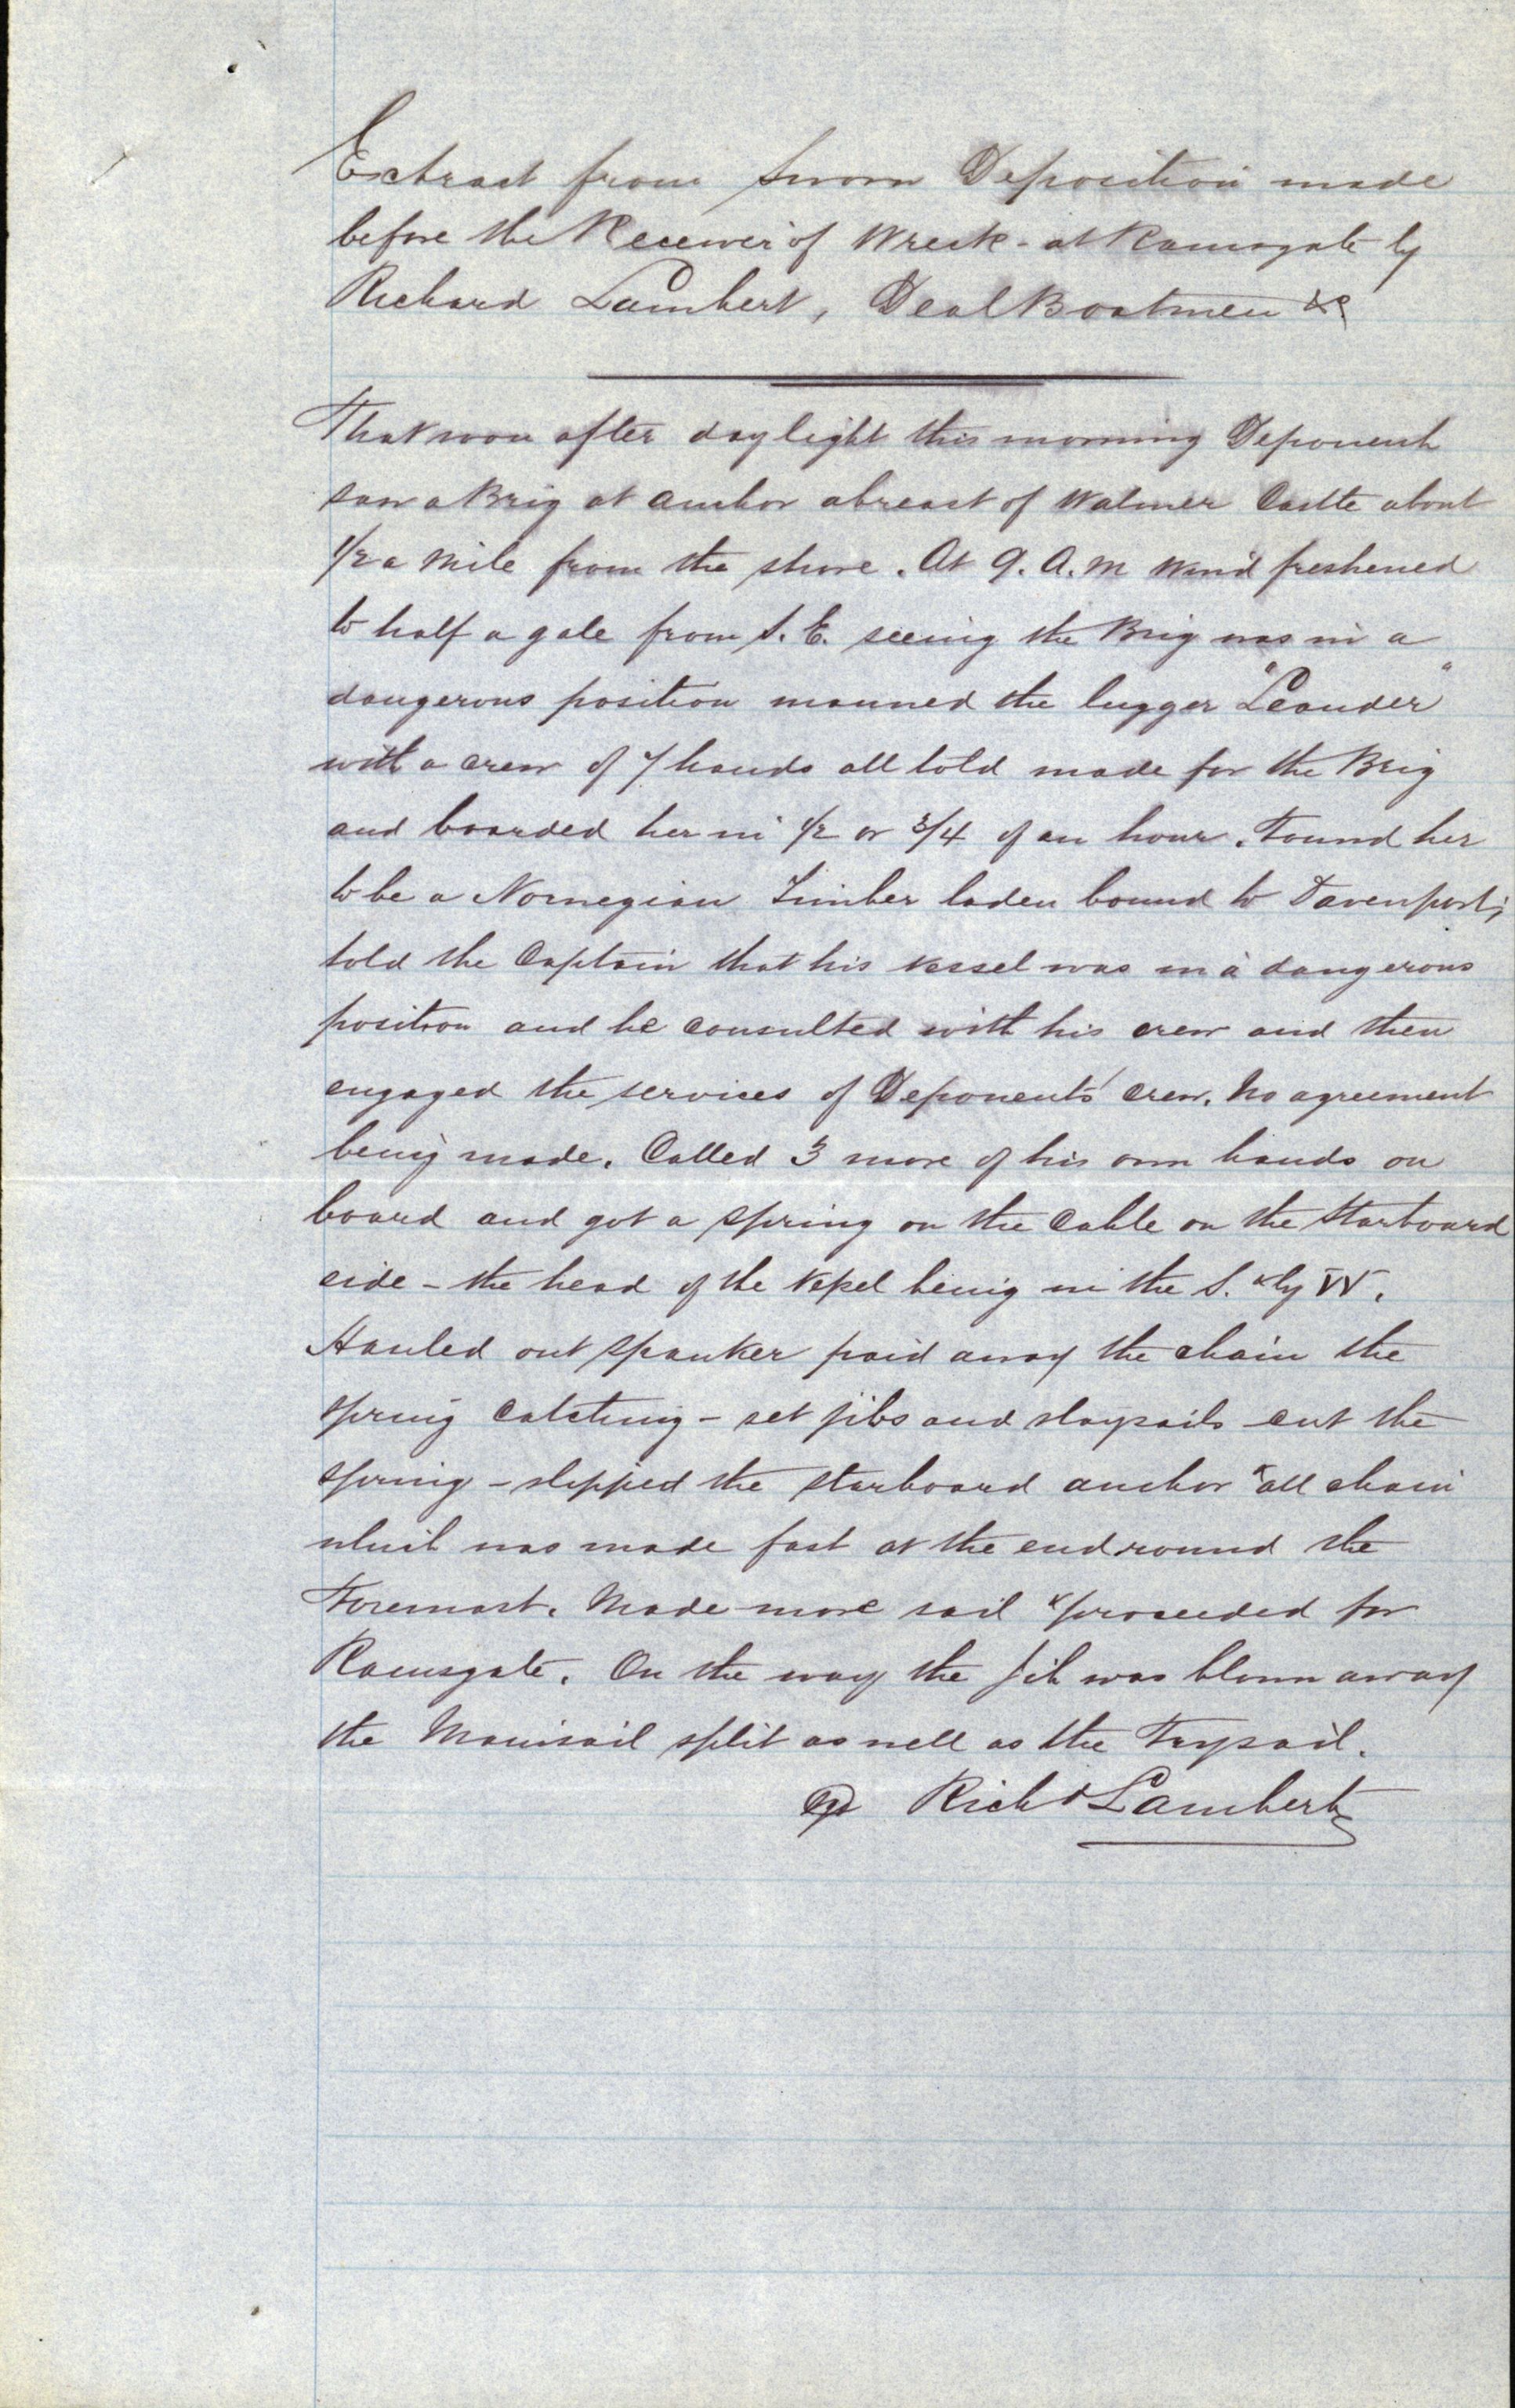 Extract from Sworn Deposition made
before the Receiver of Wreck - at Ramsgate by
Richard Lambert, Deal Boatmen &c
That soon after daylight this morning Deponent
saw a Brig at anchor abreast of Walmer Castle about
1/2 a mile from the shore. At 9. A.M Wind freshened
to half a gale from S.E. seeing the Brig was in a
dangerous position manned the lugger "Leander"
with a crew of 7 hands all told made for the Brig
and boarded her in 1/2 or 3/4 of an hour. Found her
to be a Norwegian Timber laden bound to Davenport;
told the Captain that his vessel was in a dangerous
position and he consulted with his crew and then
engaged the services of Deponents' crew. No agreement
being made. Called 3 more of his own hands on
board and got a spring on the cable on the starboard
side - the head of the vessel being in the S. & by W.
Hauled out spanker paid away the chain the
spring catching - set jibs and staysails cut the
spring - slipped the starboard anchor & all chain
which was made fast at the end round the
Foremast. Made more sail & proceeded for
Ramsgate. On the way the jib was blown away
the Mainsail split as well as the Trysail.
sgd Richd Lambert